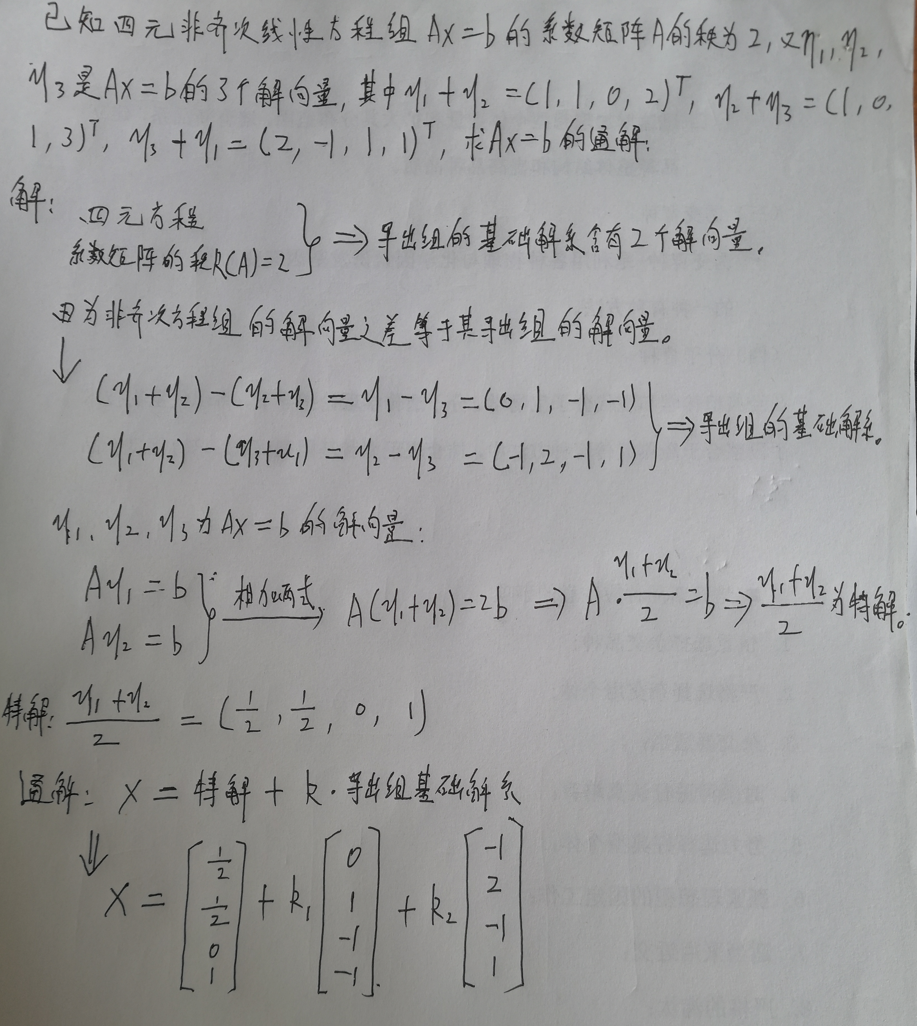 已知四元非齐次线性方程组 Ax=b 的系数矩阵A的秩为2,又η₁,η₂,
η₃是Ax=b的3个解向量,其中η₁+η₂=(1,1,0,2)ᵀ, η₂+η₃=(1,0,
1,3)ᵀ, η₃+η₁=(2,-1,1,1)ᵀ, 求Ax=b的通解.
解: 四元方程
系数矩阵的秩R(A)=2 } ⇒ 导出组的基础解系含有2个解向量.
因为非齐次方程组的解向量之差等于其导出组的解向量。
↓ (η₁+η₂)-(η₂+η₃)=η₁-η₃=(0,1,-1,-1)
(η₁+η₂)-(η₃+η₁)=η₂-η₃=(-1,2,-1,1) } ⇒ 导出组的基础解系。
η₁、η₂、η₃为Ax=b的解向量:
Aη₁=b
Aη₂=b } 相加两式→ A(η₁+η₂)=2b ⇒ A·(η₁+η₂)/2=b ⇒ (η₁+η₂)/2 为特解。
特解: (η₁+η₂)/2 = (1/2, 1/2, 0, 1)
通解: X=特解+k·导出组基础解系
⇓ X = [1/2 1/2 0 1] + k₁ [0 1 -1 -1] + k₂ [-1 2 -1 1]